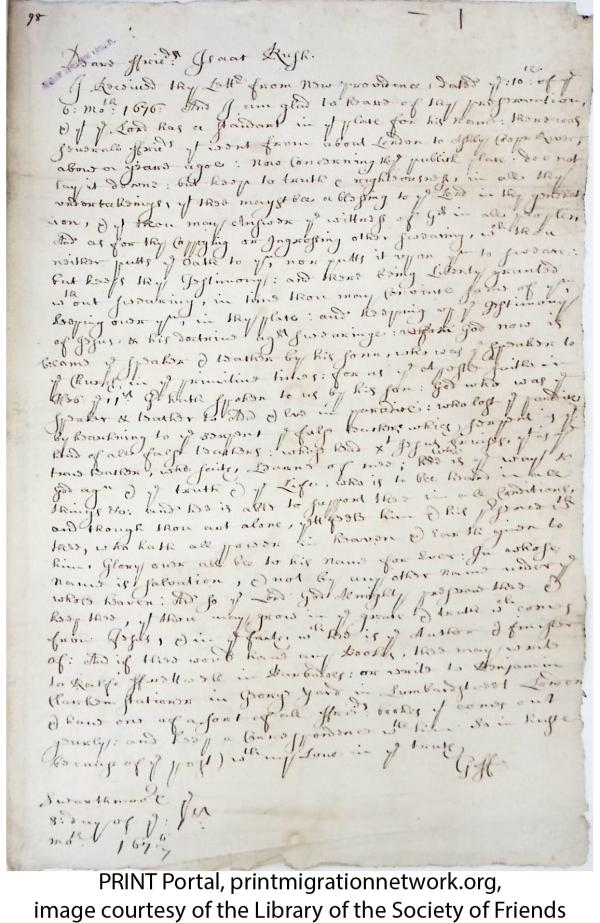 98
Deare ffriend Isaac Rush.
I Received thy Letter from New providence, dated ye: 10th: of ye
6: Mo: 1676: And I am glad to heare of thy preservation,
& yt ye Lord has a standard in yt place for his Name: there was
severall ffriends yt went from about London to Ashly Cooper River,
above a yeare agoe: Now Concerning thy publick place: doe not
lay it downe: but keep to truth & righteousness, in all thy
undertakings, yt thee mayst be a blessing to ye Lord in thy generat
ion, & yt thou may Answer ye wittness of God in all people,
And as for thy Coppying or Ingrossing other swearing, wch thou
neither putts ye oath to ym, nor putts it upon ym to sweare:
but keeps thy Testimony: and there being Liberty granted
wthout swearing, in time thou may some of ym
keeping over ym, in thy place: and keepping up ye Testimony
of Jesus, & his doctrine agst swearinge: God now is
became ye speaker & teacher by his sonn, who was ye speaker to
ye Church, in ye primitive times: for as ye Apostle saith in
Heb ye 1st God hath spoken to us by his son: God who was ye
speaker & teacher to Ad: & Eve in paradice: who lost ye paradice
by hearkning to ye serpent ye false teacher which serpent is ye
head of all false teachers: Jesus
true teacher, who saith, Learne of mee: hee is ye way to
God agn & ye truth & ye Life: who is to bee heard in all
things &c: and hee is able to support thee in all Conditions,
and though thou art alone, yett feele him & his presence wth
thee, who hath all power in heaven & Earth given to
him, Glory over all bee to his Name for Ever: In whose
name is salvation, & not by any other Name under ye
whole heaven: And so ye Lord God Almighty preserve thee &
keep thee, yt thou may grow in ye grace & truth wch comes
from Jesus, & in ye faith wch hee is ye Author & finisher
of: And if thee would have any Bookes, thee may write
to Ralph ffretwell in Barbados: or write to Benjamin
Clark Stationer in George Yard in Lumbardstreet London
& have one of a sort of all ffriends bookes yt comes out
yearly: and keep a Correspondence wth him
because of ye post) wth my Love in ye truth
GFF
Swarthmoor ye
8: day of ye:
mo: 1676/7
PRINT Portal, printmigrationnetwork.org,
image courtesy of the Library of the Society of Friends